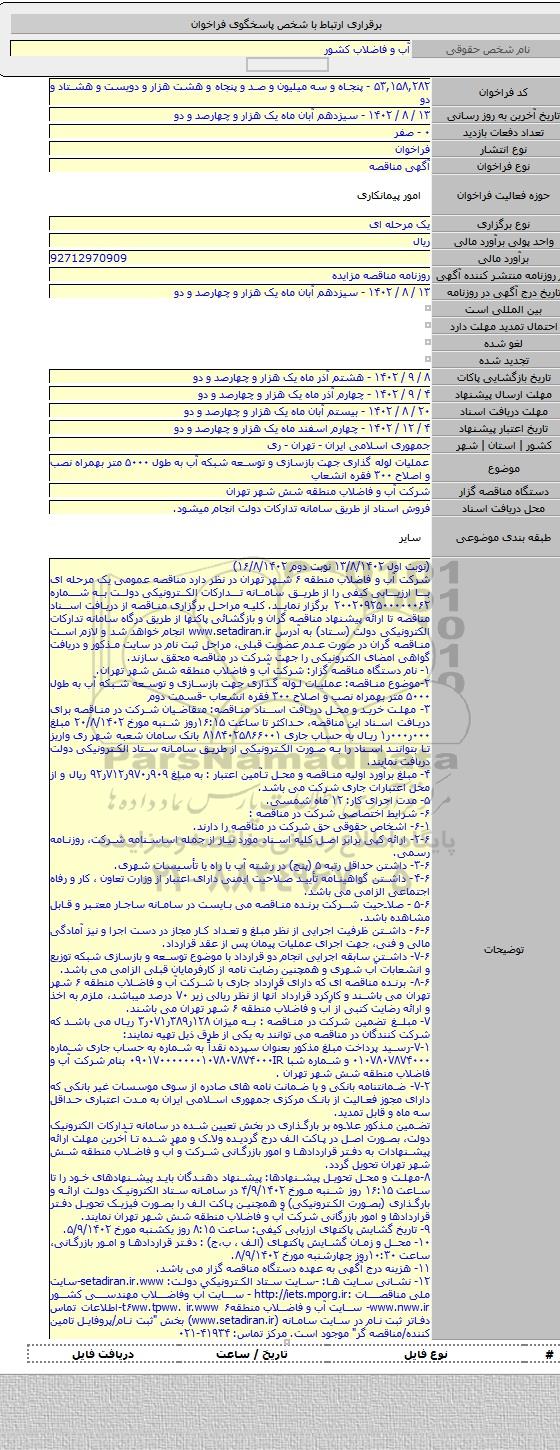 برقراری ارتباط با شخص پاسخگوی فراخوان
نام شخص حقوقی آب و فاضلاب کشور
کد فراخوان ۵۳,۱۵۸,۲۸۲ - پنجاه و سه میلیون و صد و پنجاه و هشت هزار و دویست و هشتاد و دو
تاریخ آخرین به روز رسانی ۱۳ / ۸ / ۱۴۰۲ - سیزدهم آبان ماه یک هزار و چهارصد و دو
تعداد دفعات بازدید ۰ - صفر
نوع انتشار فراخوان
نوع فراخوان آگهی مناقصه
حوزه فعالیت فراخوان امور پیمانکاری
نوع برگزاری یک مرحله ای
واحد پولی برآورد مالی ریال
برآورد مالی 92712970909
روزنامه منتشر کننده آگهی روزنامه مناقصه مزایده
تاریخ درج آگهی در روزنامه ۱۳ / ۸ / ۱۴۰۲ - سیزدهم آبان ماه یک هزار و چهارصد و دو
بین المللی است
احتمال تمدید مهلت دارد
لغو شده
تجدید شده
تاریخ بازگشایی پاکات ۸ / ۹ / ۱۴۰۲ - هشتم آذر ماه یک هزار و چهارصد و دو
مهلت ارسال پیشنهاد ۴ / ۹ / ۱۴۰۲ - چهارم آذر ماه یک هزار و چهارصد و دو
مهلت دریافت اسناد ۲۰ / ۸ / ۱۴۰۲ - بیستم آبان ماه یک هزار و چهارصد و دو
تاریخ اعتبار پیشنهاد ۴ / ۱۲ / ۱۴۰۲ - چهارم اسفند ماه یک هزار و چهارصد و دو
کشور | استان | شهر جمهوری اسلامی ایران - تهران - ری
موضوع عملیات لوله گذاری جهت بازسازی و توسعه شبکه آب به طول ۵۰۰۰ متر بهمراه نصب و اصلاح ۳۰۰ فقره انشعاب
دستگاه مناقصه گزار شرکت آب و فاضلاب منطقه شش شهر تهران
محل دریافت اسناد فروش اسناد از طریق سامانه تدارکات دولت انجام میشود.
طبقه بندی موضوعی سایر
توضیحات
(نوبت اول ۱۳/۸/۱۴۰۲ نوبت دوم ۱۶/۸/۱۴۰۲)
شرکت آب و فاضلاب منطقه ۶ شهر تهران در نظر دارد مناقصه عمومی یک مرحله ای
با ارزیابی کیفی را از طریق سامانه تدارکات الکترونیکی دولت به شماره
۲۰۰۲۰۹۲۵۰۰۰۰۰۰۶۲ برگزار نماید. کلیه مراحل برگزاری مناقصه از دریافت اسناد
مناقصه تا ارائه پیشنهاد مناقصه گران و بازگشائی پاکتها از طریق درگاه سامانه تدارکات
الکترونیکی دولت (ستاد) به آدرس www.setadiran.ir انجام خواهد شد و لازم است
مناقصه گران در صورت عدم عضویت قبلی، مراحل ثبت نام در سایت مذکور و دریافت
گواهی امضای الکترونیکی را جهت شرکت در مناقصه محقق سازند.
۱- نام دستگاه مناقصه گزار: شرکت آب و فاضلاب منطقه شش شهر تهران.
۲-موضوع مناقصه: عملیات لوله گذاری جهت بازسازی و توسعه شبکه آب به طول
۵۰۰۰ متر بهمراه نصب و اصلاح ۳۰۰ فقره انشعاب -قسمت دوم
۳- مهلت خرید و محل دریافت اسناد مناقصه: متقاضیان شرکت در مناقصه برای
دریافت اسناد این مناقصه، حداکثر تا ساعت ۱۶:۱۵روز شنبه مورخ ۲۰/۸/۱۴۰۲ مبلغ
۱٫۰۰۰٫۰۰۰ ریال به حساب جاری ۸۱۸۴۰۲۵۸۶۶۰۰۱ بانک سامان شعبه شهر ری واریز
تا بتوانند اسناد را به صورت الکترونیکی از طریق سامانه ستاد الکترونیکی دولت
دریافت نمایند.
۴- مبلغ برآورد اولیه مناقصه و محل تأمین اعتبار : به مبلغ ۹۲٫۷۱۲٫۹۷۰٫۹۰۹ ریال و از
محل اعتبارات جاری شرکت می باشد.
۵- مدت اجرای کار: ۱۲ ماه شمسی.
۶- شرایط اختصاصی شرکت در مناقصه :
۶-۱- اشخاص حقوقی حق شرکت در مناقصه را دارند.
۶-۲- ارائه کپی برابر اصل کلیه اسناد مورد نیاز از جمله اساسنامه شرکت، روزنامه
رسمی.
۶-۳- داشتن حداقل رتبه ۵ (پنج) در رشته آب یا راه یا تأسیسات شهری.
۶-۴- داشتن گواهینامه تأیید صلاحیت ایمنی دارای اعتبار از وزارت تعاون ، کار و رفاه
اجتماعی الزامی می باشد.
۶-۵ - صلاحیت شرکت برنده مناقصه می بایست در سامانه ساجار معتبر و قابل
مشاهده باشد.
۶-۶- داشتن ظرفیت اجرایی از نظر مبلغ و تعداد کار مجاز در دست اجرا و نیز آمادگی
مالی و فنی، جهت اجرای عملیات پیمان پس از عقد قرارداد.
۶-۷- داشتن سابقه اجرایی انجام دو قرارداد با موضوع توسعه و بازسازی شبکه توزیع
و انشعابات آب شهری و همچنین رضایت نامه از کارفرمایان قبلی الزامی می باشد.
۶-۸- برنده مناقصه ای که دارای قرارداد جاری با شرکت آب و فاضلاب منطقه ۶ شهر
تهران می باشند و کارکرد قرارداد آنها از نظر ریالی زیر ۷۰ درصد میباشد، ملزم به اخذ
و ارائه رضایت کتبی از آب و فاضلاب منطقه ۶ شهر تهران می باشند.
۷- مبلغ تضمین شرکت در مناقصه : به میزان ۳٫۰۷۱٫۳۸۹٫۱۲۸ ریال می باشد که
شرکت کنندگان در مناقصه می توانند به یکی از طرق ذیل تهیه نمایند:
۷-۱-رسید پرداخت مبلغ مذکور بعنوان سپرده نقداً به شماره به حساب جاری شماره
۰۱۰۷۸۰۷۸۷۴۰۰۰ و شماره شبا IR۰۹۰۱۷۰۰۰۰۰۰۰۱۰۷۸۰۷۸۷۴۰۰۰ بنام شرکت آب و
فاضلاب منطقه شش شهر تهران .
۷-۲- ضمانتنامه بانکی و یا ضمانت نامه های صادره از سوی موسسات غیر بانکی که
دارای مجوز فعالیت از بانک مرکزی جمهوری اسلامی ایران به مدت اعتباری حداقل
سه ماه و قابل تمدید.
تضمین مذکور علاوه بر بارگذاری در بخش تعیین شده در سامانه تدارکات الکترونیک
دولت، بصورت اصل در پاکت الف درج گردیده ولاک و مهر شده تا آخرین مهلت ارائه
پیشنهادات به دفتر قراردادها و امور بازرگانی شرکت و آب و فاضلاب منطقه شش
شهر تهران تحویل گردد.
۸-مهلت و محل تحویل پیشنهادها: پیشنهاد دهندگان باید پیشنهادهای خود را تا
ساعت ۱۶:۱۵ روز شنبه مورخ ۴/۹/۱۴۰۲ در سامانه ستاد الکترونیک دولت ارائه و
بارگذاری (بصورت الکترونیکی) و همچنین پاکت الف را بصورت فیزیک تحویل دفتر
قراردادها و امور بازرگانی شرکت آب و فاضلاب منطقه شش شهر تهران نمایند.
۹- تاریخ گشایش پاکتهای ارزیابی کیفی: ساعت ۸:۱۵ روز یکشنبه مورخ ۵/۹/۱۴۰۲.
۱۰- محل و زمان گشایش پاکتهای (الف ، ب،ج) : دفتر قراردادها و امور بازرگانی،
ساعت ۱۰:۳۰روز چهارشنبه مورخ ۸/۹/۱۴۰۲.
۱۱- هزینه درج آگهی به عهده دستگاه مناقصه گزار می باشد.
۱۲- نشانی سایت ها: -سایت ستاد الکترونیکی دولت: setadiran.ir.www-سایت
ملی مناقصات : http://iets.mporg.ir - سایت آب وفاضلاب مهندسی کشور
www.nww.ir- سایت آب و فاضلاب منطقه۶ t۶ww.tpww. ir.www-اطلاعات تماس
دفاتر ثبت نام در سایت سامانه (www.setadiran.ir) بخش "ثبت نام/پروفایل تامین
کننده/مناقصه گر" موجود است. مرکز تماس: ۴۱۹۳۴-۰۲۱
# نوع فایل تاریخ / ساعت دریافت فایل
ParsNamadData